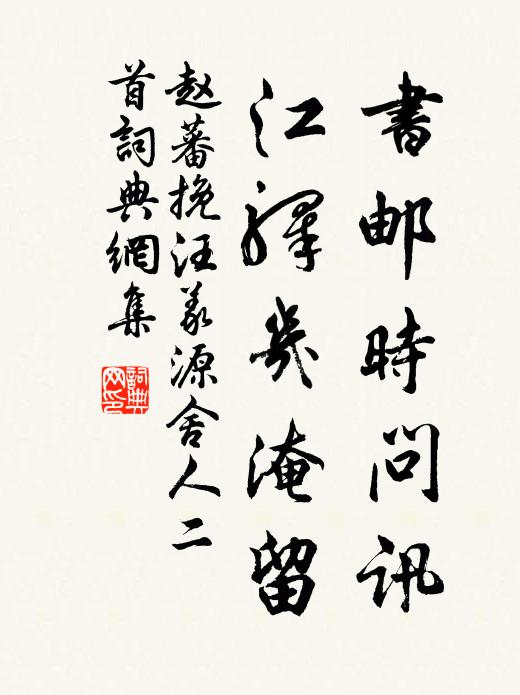 書邮時問訊
江驛幾淹留
赵蕃挽汪義源舍人二
首詞典網集
詞典
网印